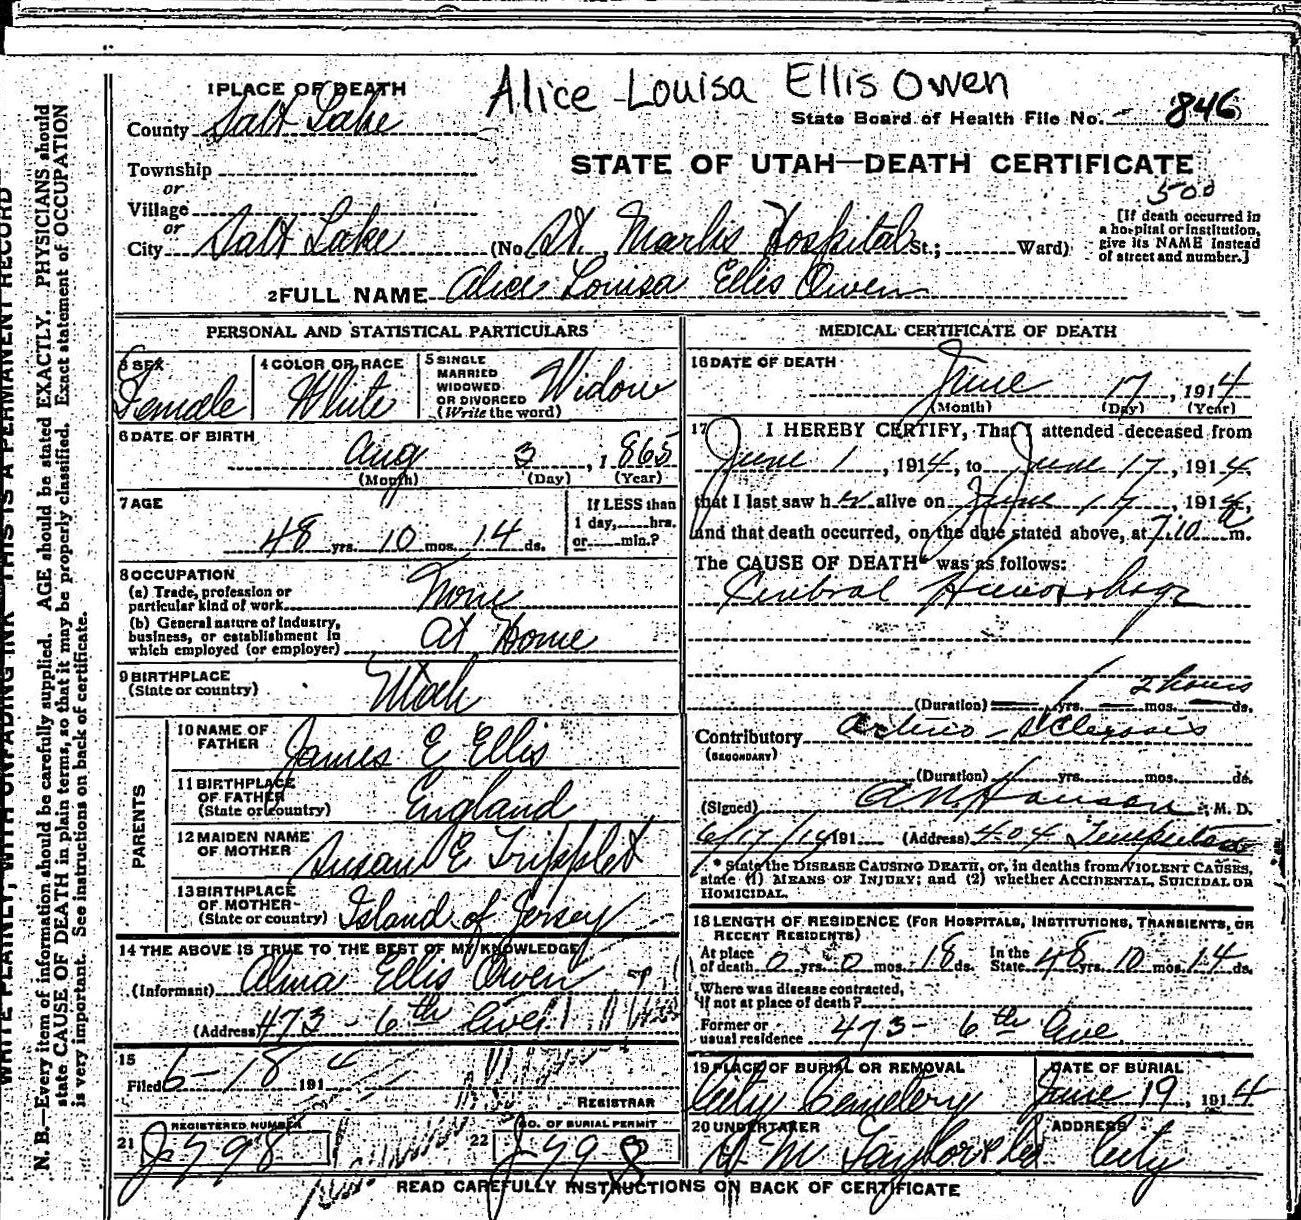 Alice Louisa Ellis Owen
1 PLACE OF DEATH
County Salt Lake
State Board of Health File No. 846
STATE OF UTAH—DEATH CERTIFICATE
500
Township
or
Village
or
City Salt Lake (No. St. Marks Hospital St.; Ward)
[If death occurred in
a hospital or institution,
give its NAME instead
of street and number.]
2 FULL NAME Alice Louisa Ellis Owen
PERSONAL AND STATISTICAL PARTICULARS
3 SEX
Female
4 COLOR OR RACE
White
5 SINGLE
MARRIED
WIDOWED
OR DIVORCED
(Write the word)
Widow
6 DATE OF BIRTH
Aug 3, 1865
(Month) (Day) (Year)
7 AGE
48 yrs. 10 mos. 14 ds.
If LESS than
1 day, hrs.
or min.?
8 OCCUPATION
(a) Trade, profession or
particular kind of work None
(b) General nature of industry,
business, or establishment in
which employed (or employer) At Home
9 BIRTHPLACE
(State or country) Utah
PARENTS
10 NAME OF
FATHER James E Ellis
11 BIRTHPLACE
OF FATHER
(State or country) England
12 MAIDEN NAME
OF MOTHER Susan E Tripplet
13 BIRTHPLACE
OF MOTHER
(State or country) Island of Jersey
14 THE ABOVE IS TRUE TO THE BEST OF MY KNOWLEDGE
(Informant) Alma Ellis Owen
(Address) 473 - 6th Ave
15
Filed 6-18 1914
REGISTRAR
21 REGISTERED NUMBER
J 798
22 NO. OF BURIAL PERMIT
J 798
MEDICAL CERTIFICATE OF DEATH
16 DATE OF DEATH
June 17, 1914
(Month) (Day) (Year)
17 I HEREBY CERTIFY, That I attended deceased from
June 1, 1914, to June 17, 1914,
that I last saw h er alive on June 17, 1914,
and that death occurred, on the date stated above, at 7.10 a m.
The CAUSE OF DEATH* was as follows:
Cerebral Hemorrhage
2 hours
(Duration) yrs. mos. ds.
Contributory Arterio-Sclerosis
(SECONDARY)
(Duration) yrs. mos. ds.
(Signed) A N Hanson, M. D.
6/17/14 191 (Address) 404 Templeton
* State the DISEASE CAUSING DEATH, or, in deaths from VIOLENT CAUSES,
state (1) MEANS OF INJURY; and (2) whether ACCIDENTAL, SUICIDAL OR
HOMICIDAL.
18 LENGTH OF RESIDENCE (FOR HOSPITALS, INSTITUTIONS, TRANSIENTS, OR
RECENT RESIDENTS)
At place
of death 0 yrs. 0 mos. 18 ds. In the
State 48 yrs. 10 mos. 14 ds.
Where was disease contracted,
if not at place of death?
Former or
usual residence 473 - 6th Ave
19 PLACE OF BURIAL OR REMOVAL
City Cemetery
DATE OF BURIAL
June 19, 1914
20 UNDERTAKER
S M Taylor & Co
ADDRESS
City
READ CAREFULLY INSTRUCTIONS ON BACK OF CERTIFICATE
WRITE PLAINLY, WITH UNFADING INK—THIS IS A PERMANENT RECORD
N. B.—Every item of information should be carefully supplied. AGE should be stated EXACTLY. PHYSICIANS should
state CAUSE OF DEATH in plain terms, so that it may be properly classified. Exact statement of OCCUPATION
is very important. See instructions on back of certificate.